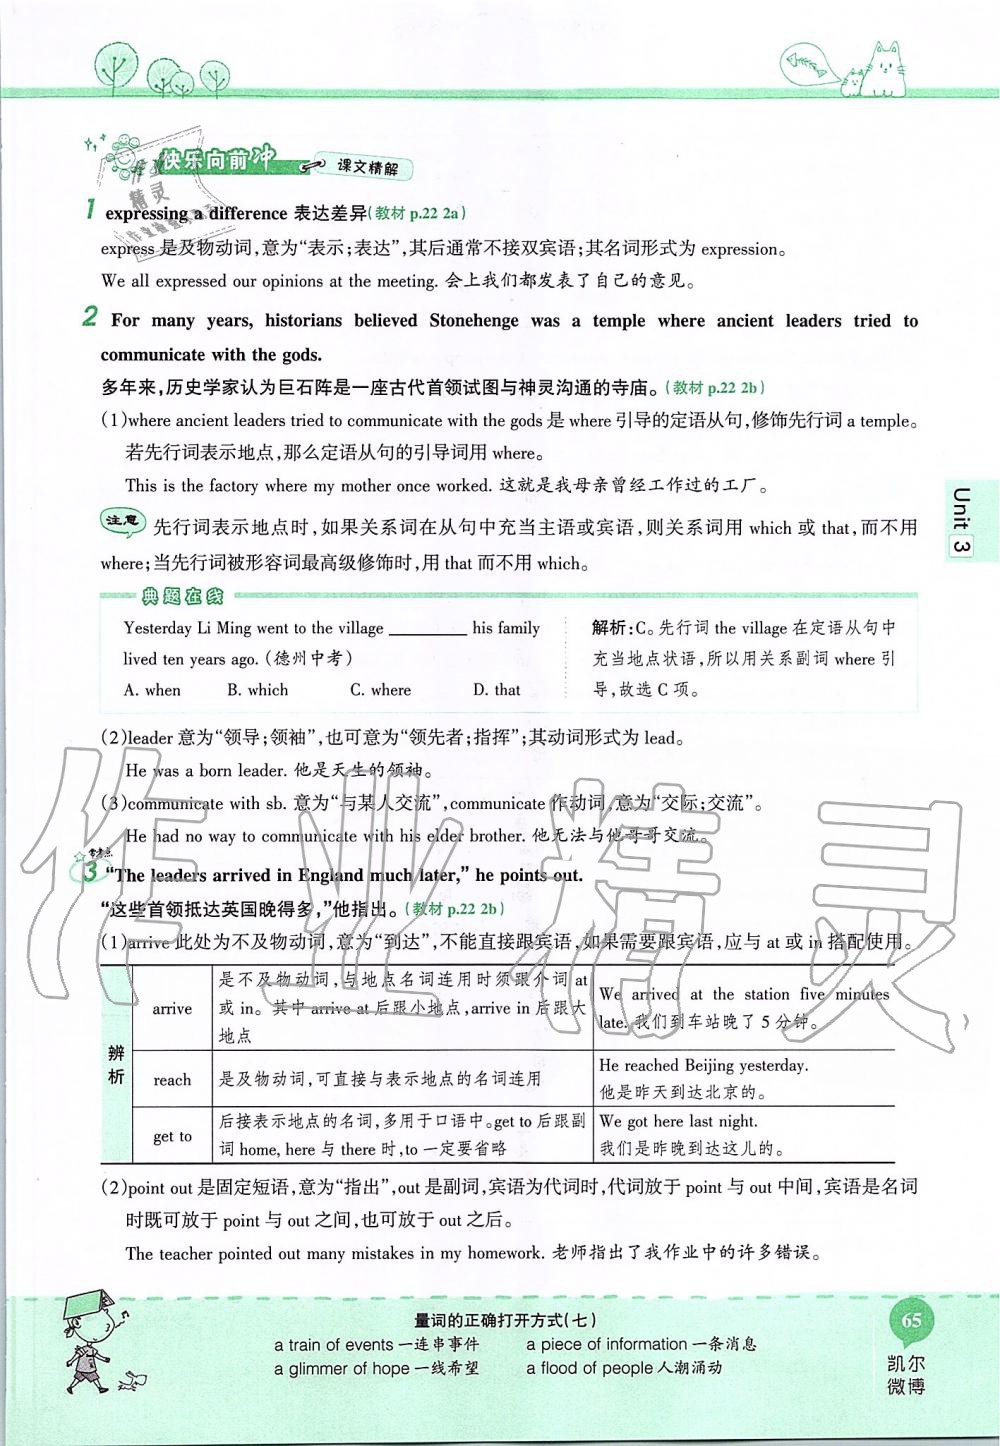 快乐向前冲 课文精解
1 expressing a difference 表达差异(教材 p.22 2a)
express 是及物动词,意为“表示;表达”,其后通常不接双宾语;其名词形式为 expression。
We all expressed our opinions at the meeting. 会上我们都发表了自己的意见。
2 For many years, historians believed Stonehenge was a temple where ancient leaders tried to
communicate with the gods.
多年来,历史学家认为巨石阵是一座古代首领试图与神灵沟通的寺庙。(教材 p.22 2b)
(1)where ancient leaders tried to communicate with the gods 是 where 引导的定语从句,修饰先行词 a temple。
若先行词表示地点,那么定语从句的引导词用 where。
This is the factory where my mother once worked. 这就是我母亲曾经工作过的工厂。
注意 先行词表示地点时,如果关系词在从句中充当主语或宾语,则关系词用 which 或 that,而不用
where;当先行词被形容词最高级修饰时,用 that 而不用 which。
典题在线
Yesterday Li Ming went to the village ________ his family
lived ten years ago. (德州中考)
A. when B. which C. where D. that
解析:C。先行词 the village 在定语从句中
充当地点状语,所以用关系副词 where 引
导,故选 C 项。
(2)leader 意为“领导;领袖”,也可意为“领先者;指挥”;其动词形式为 lead。
He was a born leader. 他是天生的领袖。
(3)communicate with sb. 意为“与某人交流”,communicate 作动词,意为“交际;交流”。
He had no way to communicate with his elder brother. 他无法与他哥哥交流。
常考点
3 “The leaders arrived in England much later,” he points out.
“这些首领抵达英国晚得多,”他指出。(教材 p.22 2b)
(1)arrive 此处为不及物动词,意为“到达”,不能直接跟宾语,如果需要跟宾语,应与 at 或 in 搭配使用。
辨析
arrive
是不及物动词,与地点名词连用时须跟介词 at
或 in。其中 arrive at 后跟小地点,arrive in 后跟大
地点
We arrived at the station five minutes
late. 我们到车站晚了 5 分钟。
reach
是及物动词,可直接与表示地点的名词连用
He reached Beijing yesterday.
他是昨天到达北京的。
get to
后接表示地点的名词,多用于口语中。get to 后跟副
词 home, here 与 there 时,to 一定要省略
We got here last night.
我们是昨晚到达这儿的。
(2)point out 是固定短语,意为“指出”,out 是副词,宾语为代词时,代词放于 point 与 out 中间,宾语是名词
时既可放于 point 与 out 之间,也可放于 out 之后。
The teacher pointed out many mistakes in my homework. 老师指出了我作业中的许多错误。
Unit 3
量词的正确打开方式(七)
a train of events 一连串事件 a piece of information 一条消息
a glimmer of hope 一线希望 a flood of people 人潮涌动
65
凯尔
微博
作业精灵